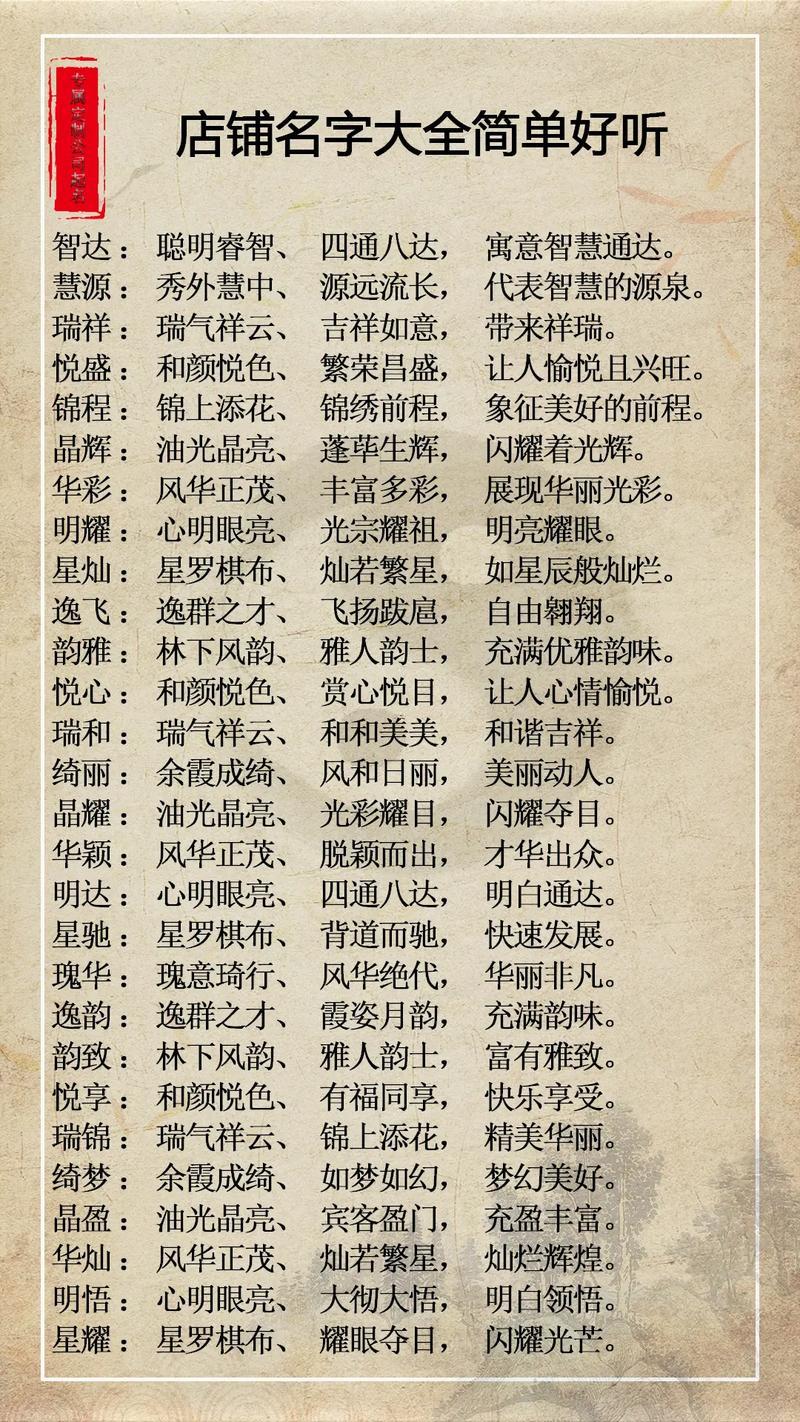 店铺名字大全简单好听
智达：聪明睿智、四通八达，寓意智慧通达。
慧源：秀外慧中、源远流长，代表智慧的源泉。
瑞祥：瑞气祥云、吉祥如意，带来祥瑞。
悦盛：和颜悦色、繁荣昌盛，让人愉悦且兴旺。
锦程：锦上添花、锦绣前程，象征美好的前程。
晶辉：油光晶亮、蓬荜生辉，闪耀着光辉。
华彩：风华正茂、丰富多彩，展现华丽光彩。
明耀：心明眼亮、光宗耀祖，明亮耀眼。
星灿：星罗棋布、灿若繁星，如星辰般灿烂。
逸飞：逸群之才、飞扬跋扈，自由翱翔。
韵雅：林下风韵、雅人韵士，充满优雅韵味。
悦心：和颜悦色、赏心悦目，让人心情愉悦。
瑞和：瑞气祥云、和和美美，和谐吉祥。
绮丽：余霞成绮、风和日丽，美丽动人。
晶耀：油光晶亮、光彩耀目，闪耀夺目。
华颖：风华正茂、脱颖而出，才华出众。
明达：心明眼亮、四通八达，明白通达。
星驰：星罗棋布、背道而驰，快速发展。
瑰华：瑰意琦行、风华绝代，华丽非凡。
逸韵：逸群之才、霞姿月韵，充满韵味。
韵致：林下风韵、雅人韵士，富有雅致。
悦享：和颜悦色、有福同享，快乐享受。
瑞锦：瑞气祥云、锦上添花，精美华丽。
绮梦：余霞成绮、如梦如幻，梦幻美好。
晶盈：油光晶亮、宾客盈门，充盈丰富。
华灿：风华正茂、灿若繁星，灿烂辉煌。
明悟：心明眼亮、大彻大悟，明白领悟。
星耀：星罗棋布、耀眼夺目，闪耀光芒。